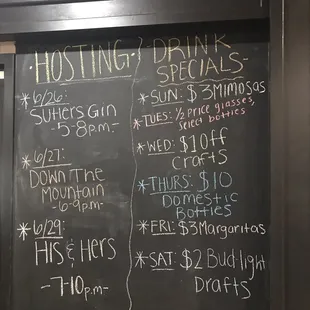 HOSTING
*6/26:
SUTTERS GIN
-5-8p.m-
*6/27:
DOWN THE
MOUNTAIN
-6-9p.m-
*6/29:
HIS & HERS
-7-10p.m-
DRINK
SPECIALS
*SUN: $3 MIMOSAS
*TUES: 1/2 PRICE glasses,
select bottles
*WED: $1 OFF
CRAFTS
*THURS: $10
DOMESTIC
BOTTLES
*FRI: $3 MARGARITAS
*SAT: $2 Bud light
DRAFTS